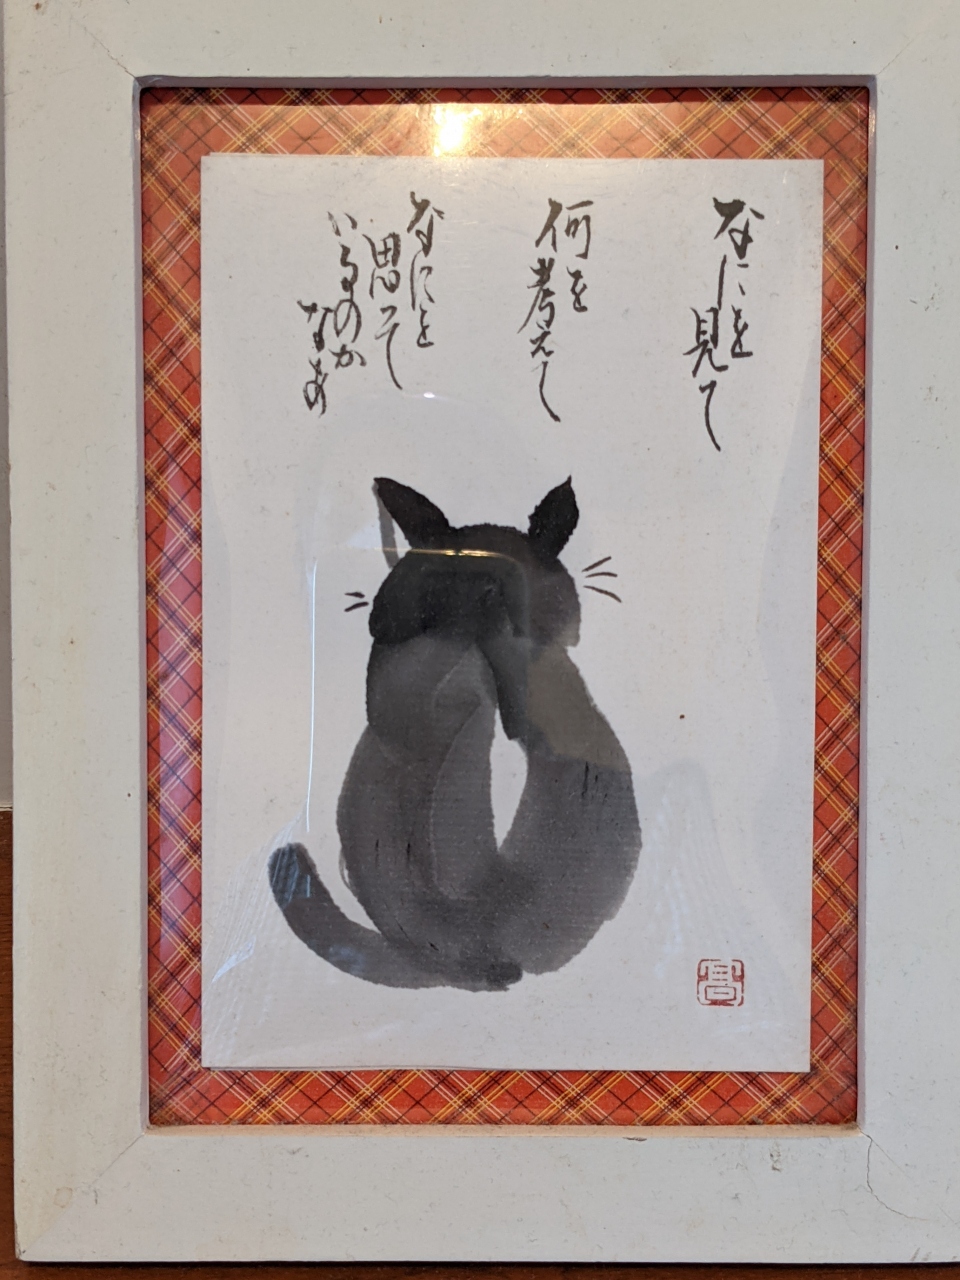 なにを
見て
何を
考えて
なにを
思って
いるのか
なあ
高